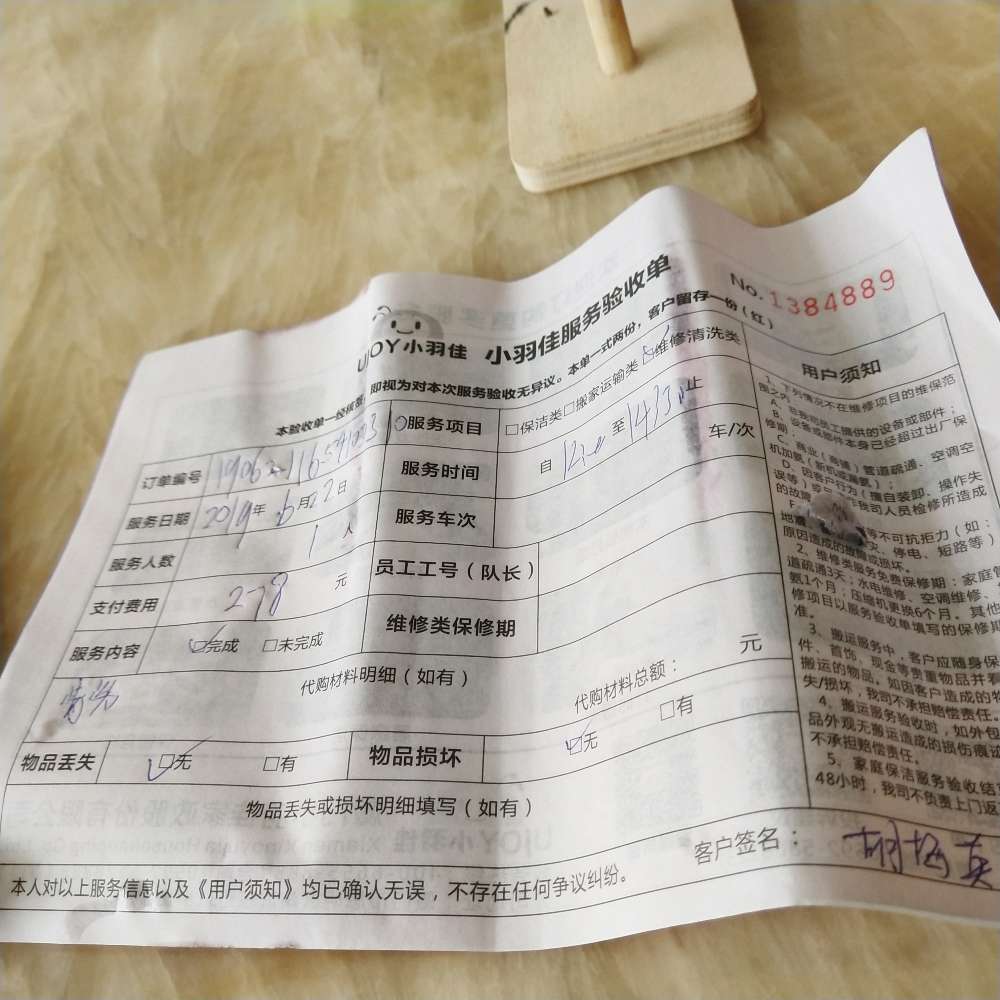 No.1384889
UJOY小羽佳 小羽佳服务验收单
即视为对本次服务验收无异议。本单一式两份，客户留存一份（红）
订单编号
服务项目 □保洁类□搬家运输类☑维修清洗类
服务日期 2019年6月22日
服务时间 自 至 止
服务人数 1人
服务车次 车/次
支付费用 278 元
员工工号（队长）
服务内容 ☑完成 □未完成
维修类保修期
代购材料明细（如有）
代购材料总额： 元
物品丢失 ☑无 □有
物品损坏 ☑无 □有
物品丢失或损坏明细填写（如有）
客户签名：
本人对以上服务信息以及《用户须知》均已确认无误，不存在任何争议纠纷。
用户须知
1、下列情况不在维修项目的维保范
围之内
A、非我司员工提供的设备或部件；
B、设备或部件本身已经超过出厂保
修期；
C、商业（商铺）管道疏通、空调空
机加氨（新机或漏氨）；
D、因客户行为（擅自装卸、操作失
误等）
的故障
地震 等不可抗拒力（如：
灾、停电、短路等）
原因造成的故障或损坏。
2、维修类服务免费保修期：家庭管
道疏通3天；水电维修、空调维修、
氨1个月；压缩机更换6个月。其他
修项目以服务验收单填写的保修期
准。
3、搬运服务中，客户应随身保
件、首饰、现金等贵重物品并看
搬运的物品。如因客户造成的物
失/损坏，我司不承担赔偿责任。
4、搬运服务验收时，如外包
品外观无搬运造成的损伤痕迹
不承担赔偿责任。
5、家庭保洁服务验收结
48小时，我司不负责上门返